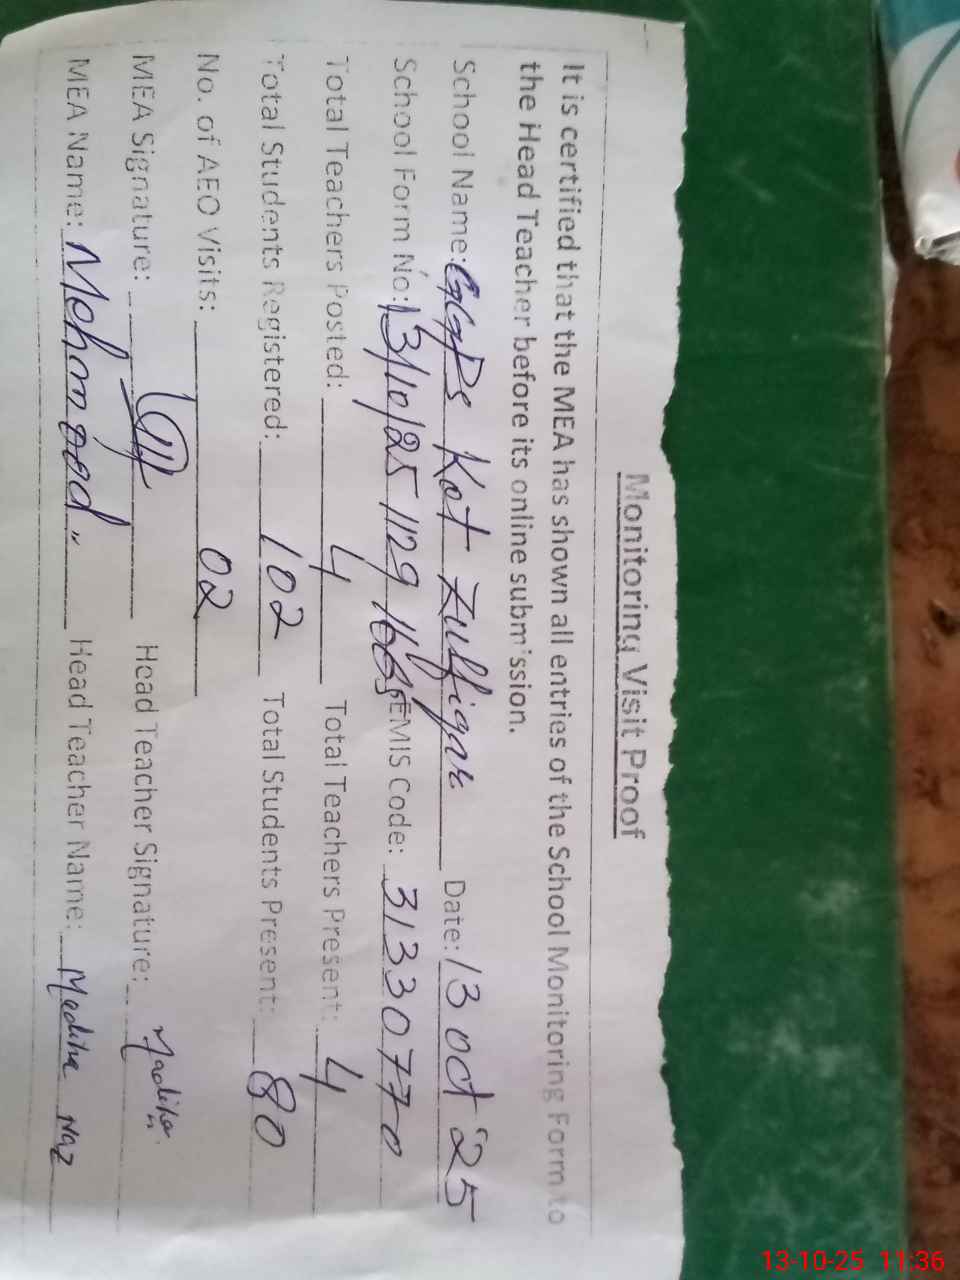 Monitoring Visit Proof
It is certified that the MEA has shown all entries of the School Monitoring Form to
the Head Teacher before its online submission.
School Name: GGPS Kot Zulfiqar Date: 13 oct 25
School Form No: 13/10/25 1129 1665 EMIS Code: 31330770
Total Teachers Posted: 4 Total Teachers Present: 4
Total Students Registered: 102 Total Students Present: 80
No. of AEO Visits: 02
MEA Signature: Head Teacher Signature: Madiha
MEA Name: Mehmood Head Teacher Name: Madiha Naz
13-10-25 11:36